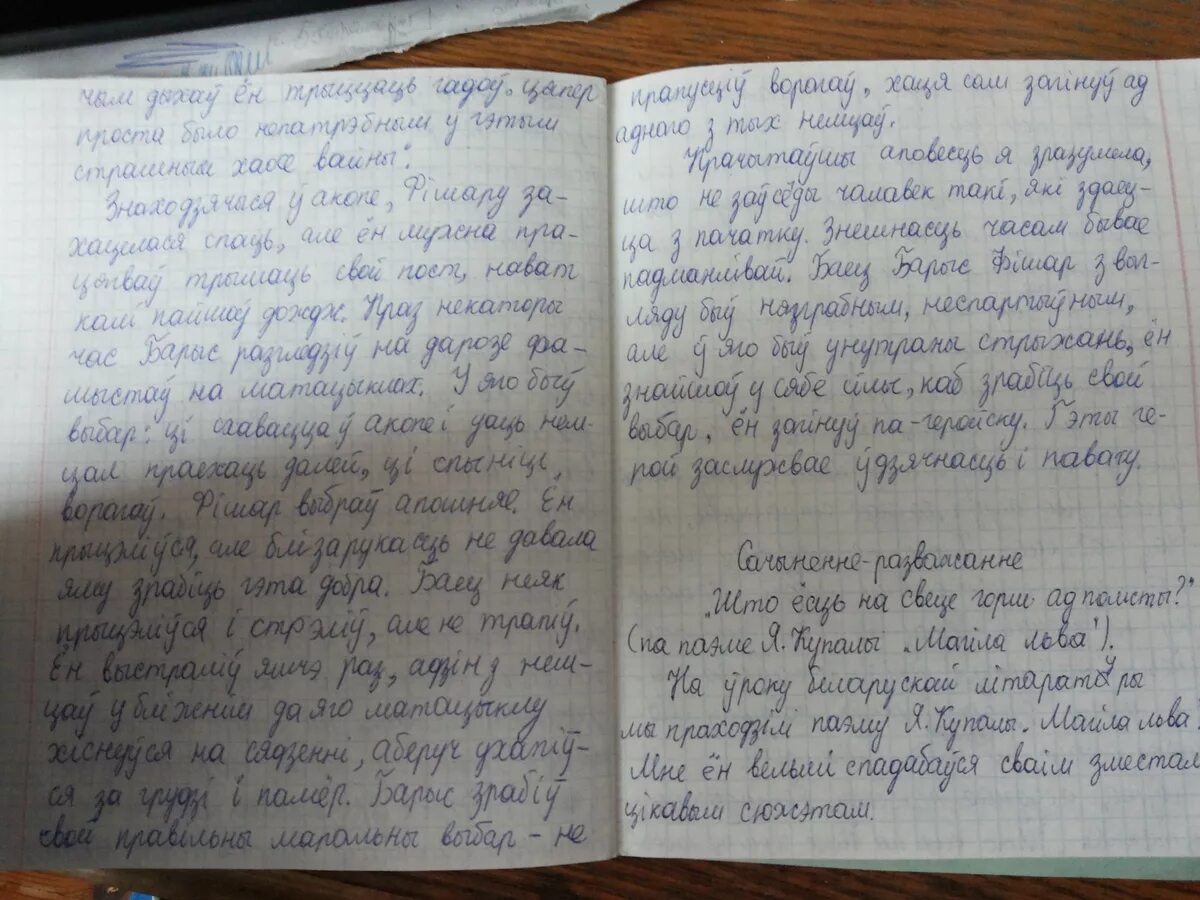 чым дыхаў ён трыццаць гадоў, цяпер
проста было непатрэбным у гэтым
страшным хаосе вайны".
Знаходзячыся ў акопе, Фішару за-
хацелася спаць, але ён мужна пра-
цягваў трымаць свой пост, нават
калі пайшоў дождж. Праз некаторы
час Барыс разгледзіў на дарозе фа-
шыстаў на матацыклах. У яго быў
выбар: ці схавацца ў акопе і даць нем-
цам праехаць далей, ці спыніць
ворагаў. Фішар выбраў апошняе. Ён
прыцэліўся, але блізарукасць не давала
яму зрабіць гэта добра. Баец неяк
прыцэліўся і стрэліў, але не трапіў.
Ён выстраліў яшчэ раз, адзін з нем-
цаў у бліжэйшай да яго матацыклу
хіснуўся на сядзенні, аберуч ухапіў-
ся за грудзі і памёр. Барыс зрабіў
свой правільны маральны выбар - не
прапусціў ворагаў, хаця сам загінуў ад
аднаго з тых немцаў.
Прачытаўшы аповесць я зразумела,
што не заўсёды чалавек такі, які здаец-
ца з пачатку. Знешнасць часам бывае
падманлівай. Баец Барыс Фішар з выг-
ляду быў нязграбным, неспартыўным,
але ў яго быў унутраны стрыжань, ён
знайшоў у сябе сілы, каб зрабіць свой
выбар, ён загінуў па-геройску. Гэты ге-
рой заслужвае ўдзячнасць і павагу.
Сачыненне-разважанне
"Што ёсць на свеце горш ад помсты?"
(па паэме Я. Купалы "Магіла льва").
На ўроку беларускай літаратуры
мы праходзілі паэму Я. Купалы "Магіла льва.
Мне ён вельмі спадабаўся сваім зместам
цікавым сюжэтам.